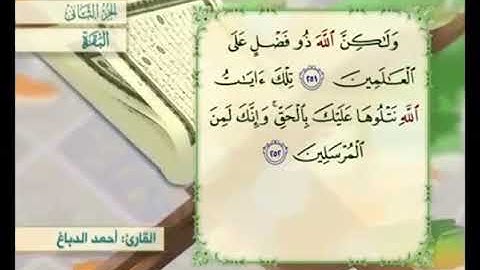 الجزء الثاني
البقرة
وَلَٰكِنَّ ٱللَّهَ ذُو فَضْلٍ عَلَى
ٱلْعَٰلَمِينَ ٢٥١ تِلْكَ ءَايَٰتُ
ٱللَّهِ نَتْلُوهَا عَلَيْكَ بِٱلْحَقِّ ۚ وَإِنَّكَ لَمِنَ
ٱلْمُرْسَلِينَ ٢٥٢
القارئ: أحمد الدباغ